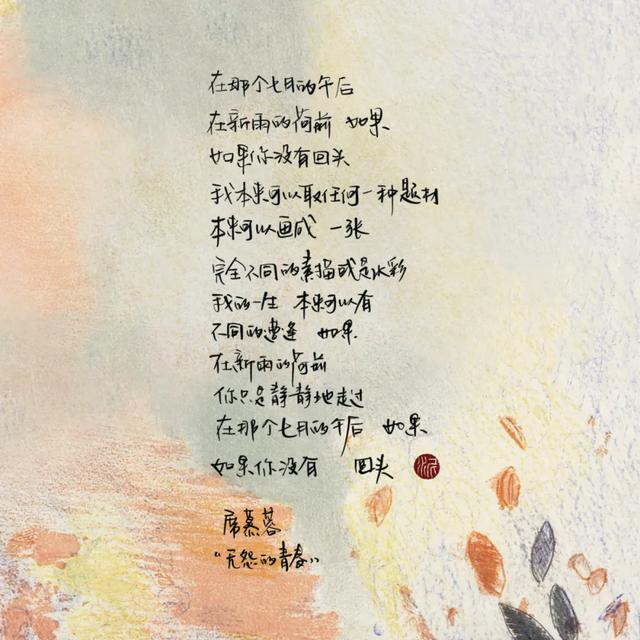 在那个七月的午后
在新雨的荷前 如果
如果你没有回头
我本来可以取任何一种题材
本来可以画成 一张
完全不同的素描或是水彩
我的一生 本来可以有
不同的遭逢 如果
在新雨的荷前
你只是静静地走过
在那个七月的午后 如果
如果你没有 回头
席慕蓉
“无怨的青春”